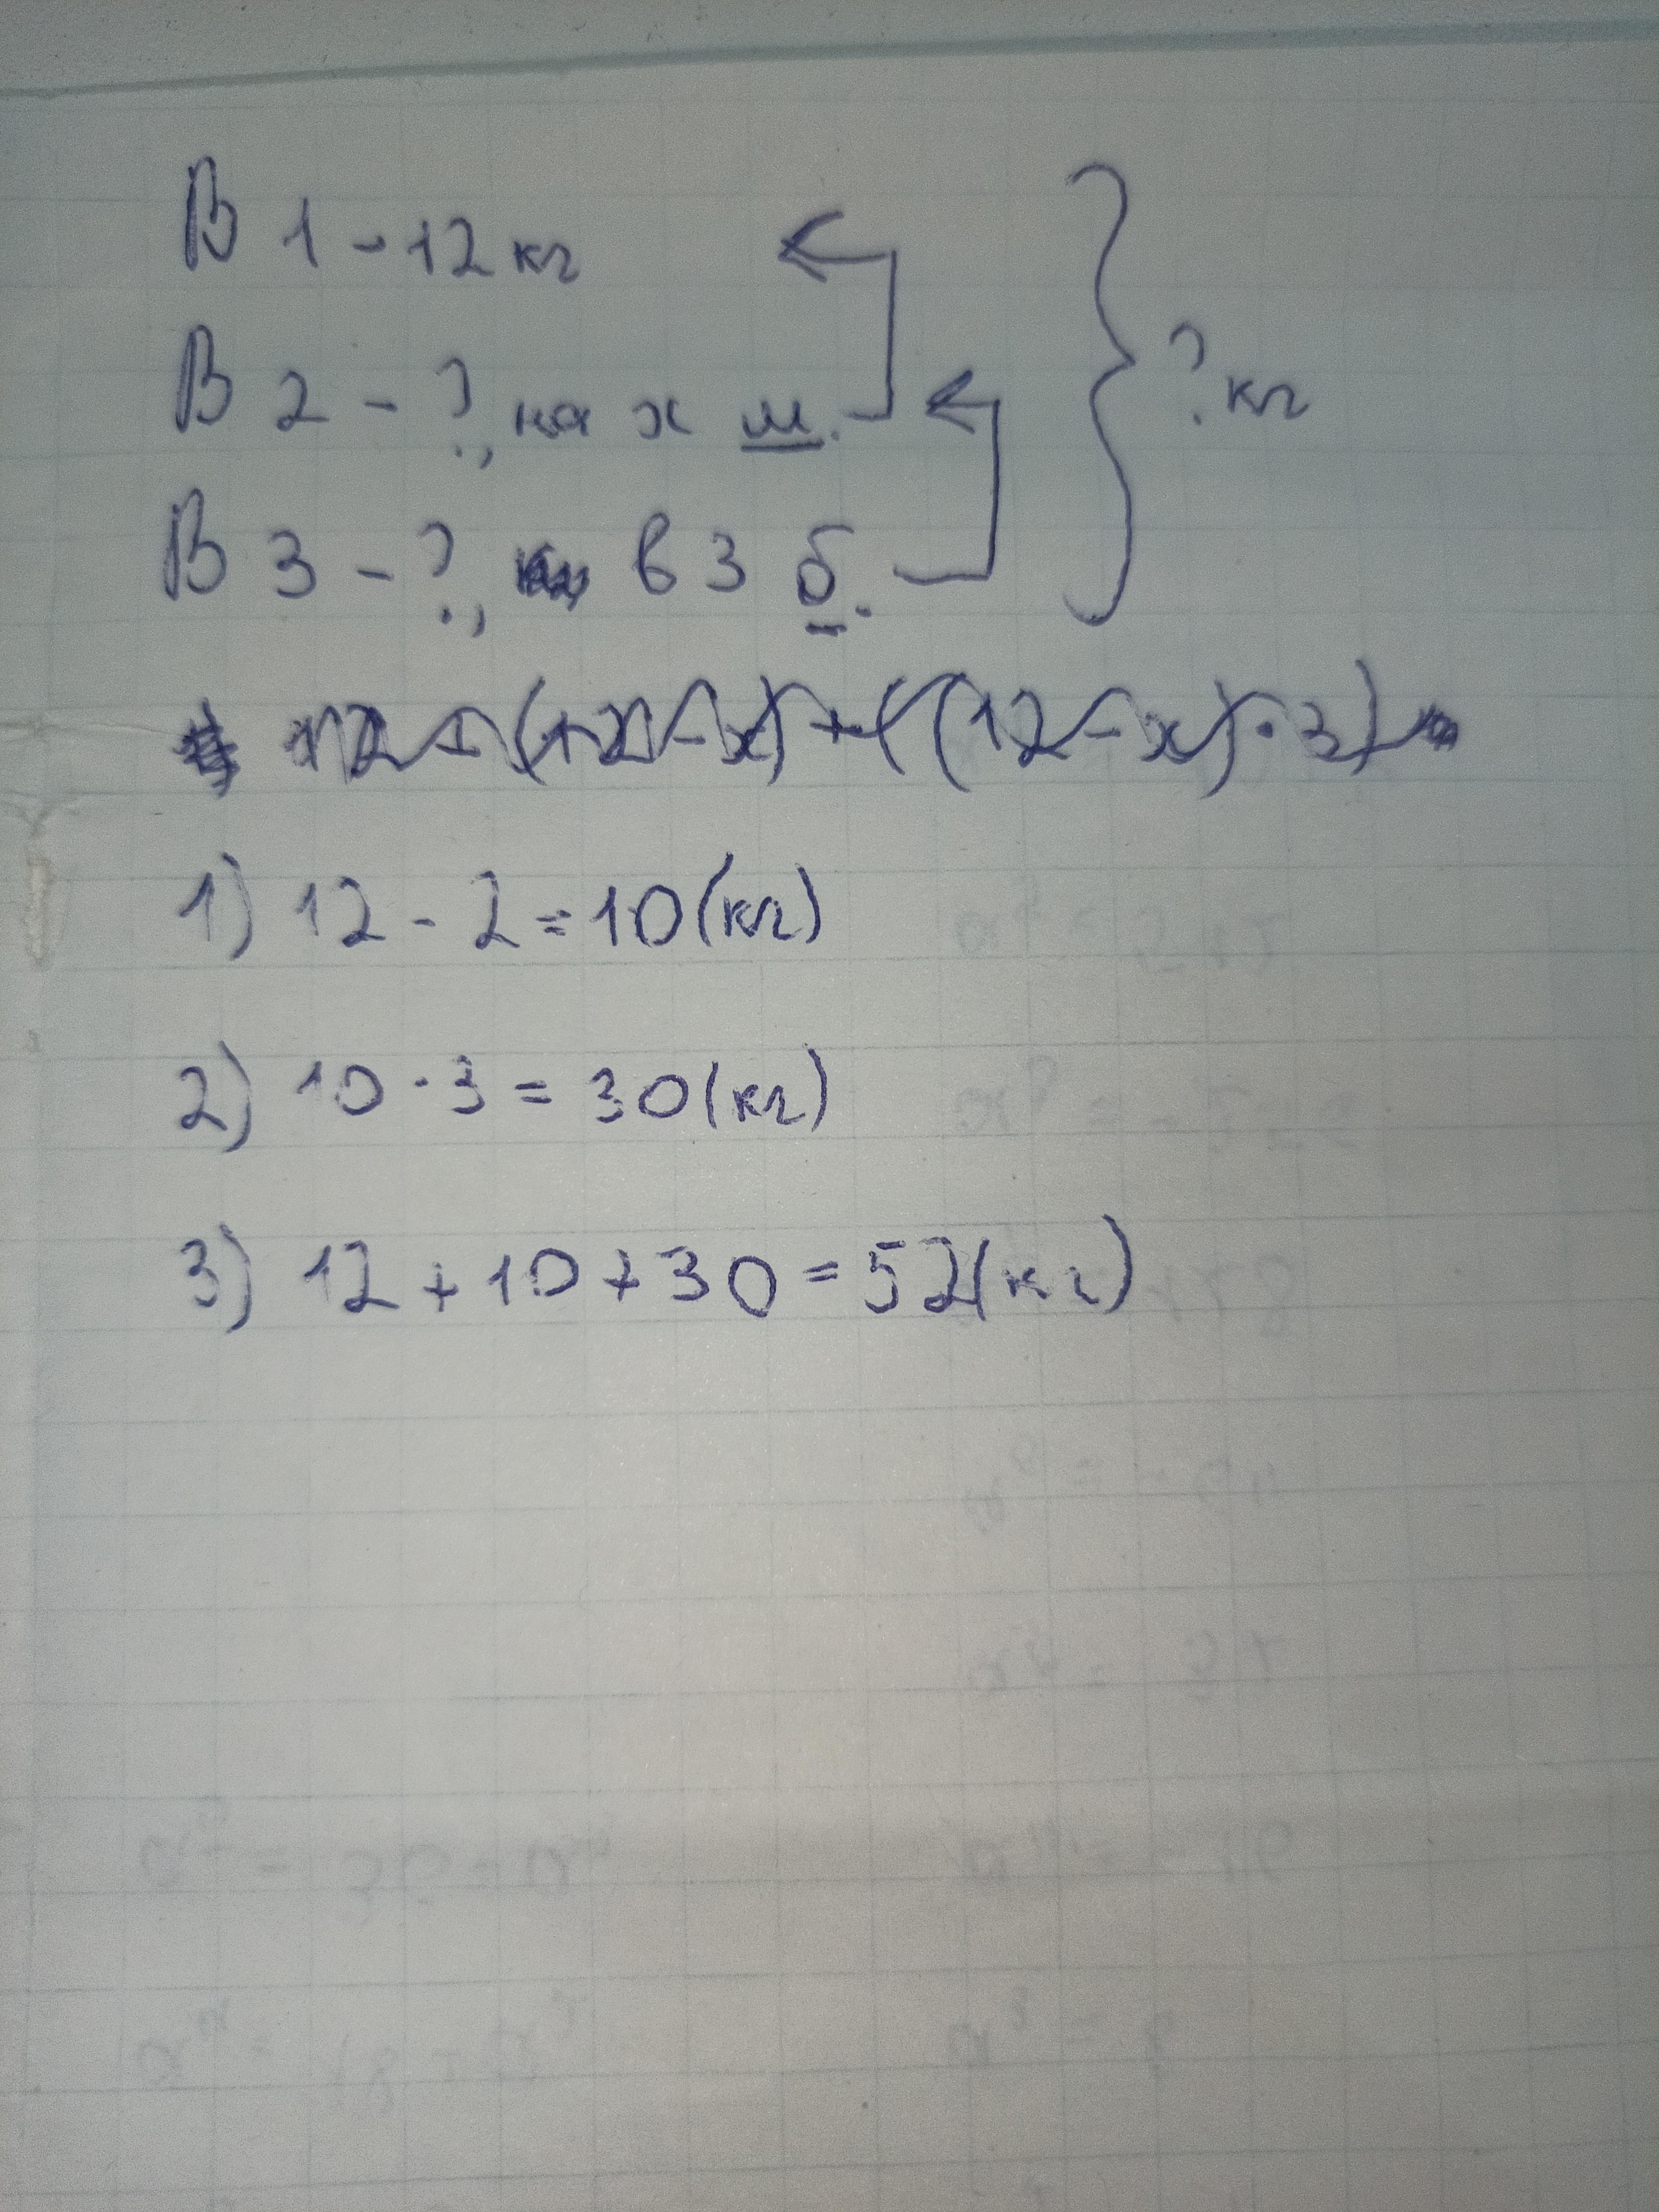 В 1 - 12 кг
В 2 - ?, на х м.
В 3 - ?, в 3 б.
? кг
12 + (12 - х) + ((12 - х) · 3)
1) 12 - 2 = 10 (кг)
2) 10 · 3 = 30 (кг)
3) 12 + 10 + 30 = 52 (кг)